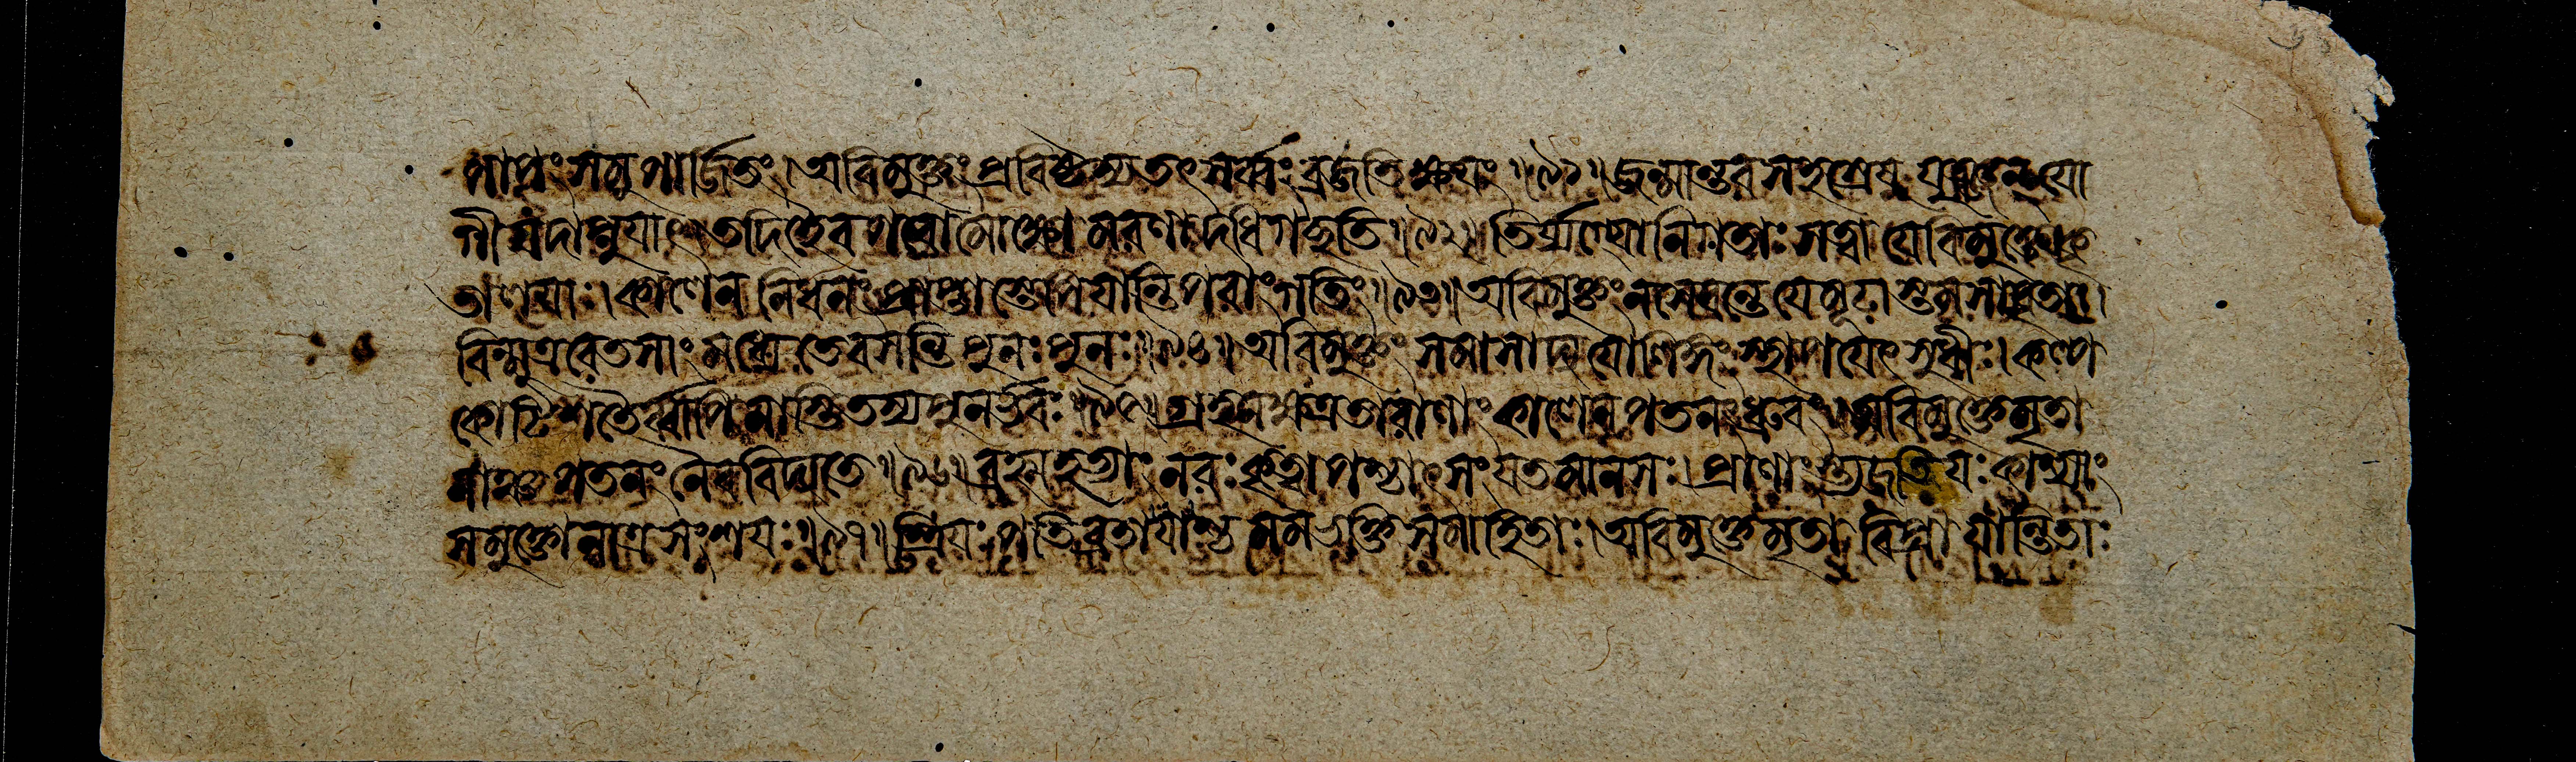 পাপং সমুপার্জিতং।অবিমুক্তং প্রবিষ্টস্য তৎ সর্ব্বং ব্রজতি ক্ষয়ং॥৯১॥জন্মান্তরসহস্রেষু যুঞ্জন্ যো
গী যদাপ্নুয়াৎ।তদিহৈব পরো মোক্ষো মরণাদধিগচ্ছতি॥৯২॥তির্য্যগ্যোনিগতাঃ সত্ত্বা যে বিমুক্তে কৃ
তালয়াঃ।কালেন নিধনং প্রাপ্তাস্তেপি যান্তি পরাং গতিং॥৯৩॥অবিমুক্তং ন সেবন্তে যে মূঢাস্তমসাবৃতাঃ।
বিন্মুত্ররেতসাং মধ্যে তে বসন্তি পুনঃ পুনঃ॥৯৪॥অবিমুক্তং সমাসাদ্য যো লিঙ্গং স্থাপয়েৎ সুধীঃ।কল্প
কোটিশতৈর্ব্বাপি নাস্তি তস্য পুনর্ভবঃ॥৯৫॥গ্রহনক্ষত্রতারাণাং কালেন পতনং ধ্রুবং।অবিমুক্তে মৃতা
নাঞ্চ পতনং নৈব বিদ্যতে॥৯৬॥ব্রহ্মহত্যাং নরঃ কৃত্বা পশ্চাৎ সংযতমানসঃ।প্রাণাংস্ত্যজতি যঃ কাশ্যাং
স মুক্তো নাত্র সংশয়ঃ॥৯৭॥স্ত্রিয়ঃ পতিব্রতা যাশ্চ মম ভক্তিসমাহিতাঃ।অবিমুক্তে মৃতা বিপ্রা যান্তি তাঃ